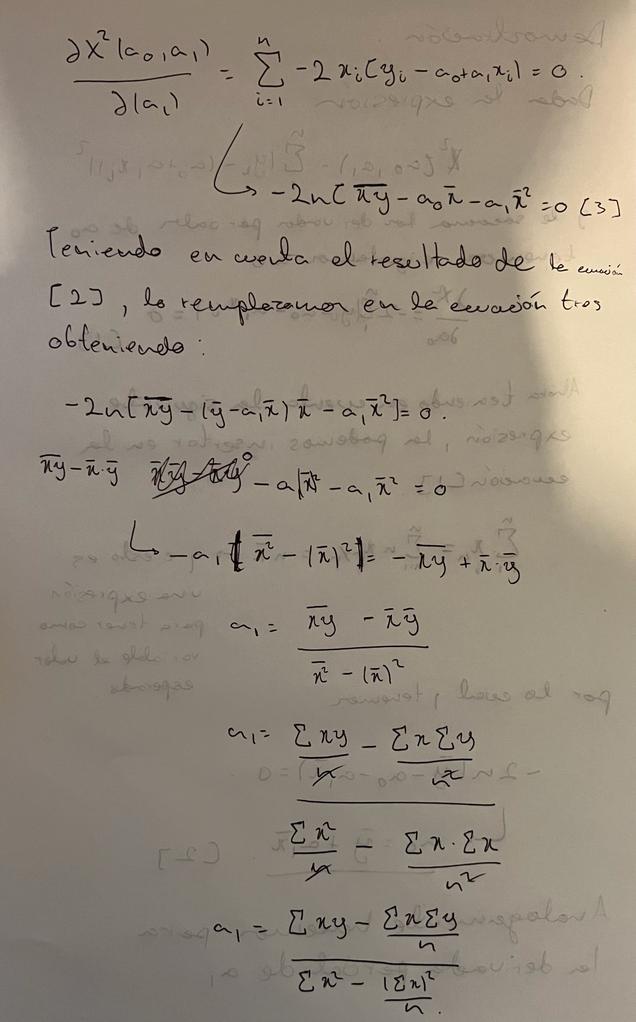 ∂X²(a₀,a₁) / ∂(a₁) = Σ_{i=1}^{n} -2xᵢ(yᵢ - a₀+a₁xᵢ) = 0.
↳ -2n[x̅y̅ - a₀x̄ - a₁x̄² = 0 [3]
Teniendo en cuenta el resultado de la ecuación
[2], lo remplazamos en la ecuación tres
obteniendo:
-2n[x̅y̅ - (ȳ - a₁x̄)x̄ - a₁x̄²] = 0.
x̅y̅ - x̄·ȳ - a₁x̄² - a₁x̄² = 0
↳ -a₁[x̄² - (x̄)²] = -x̅y̅ + x̄·ȳ
a₁ = (x̅y̅ - x̄ȳ) / (x̄² - (x̄)²)
a₁ = (Σxy/n - ΣxΣy/n²) / (Σx²/n - Σx·Σx/n²)
a₁ = (Σxy - ΣxΣy/n) / (Σx² - (Σx)²/n).